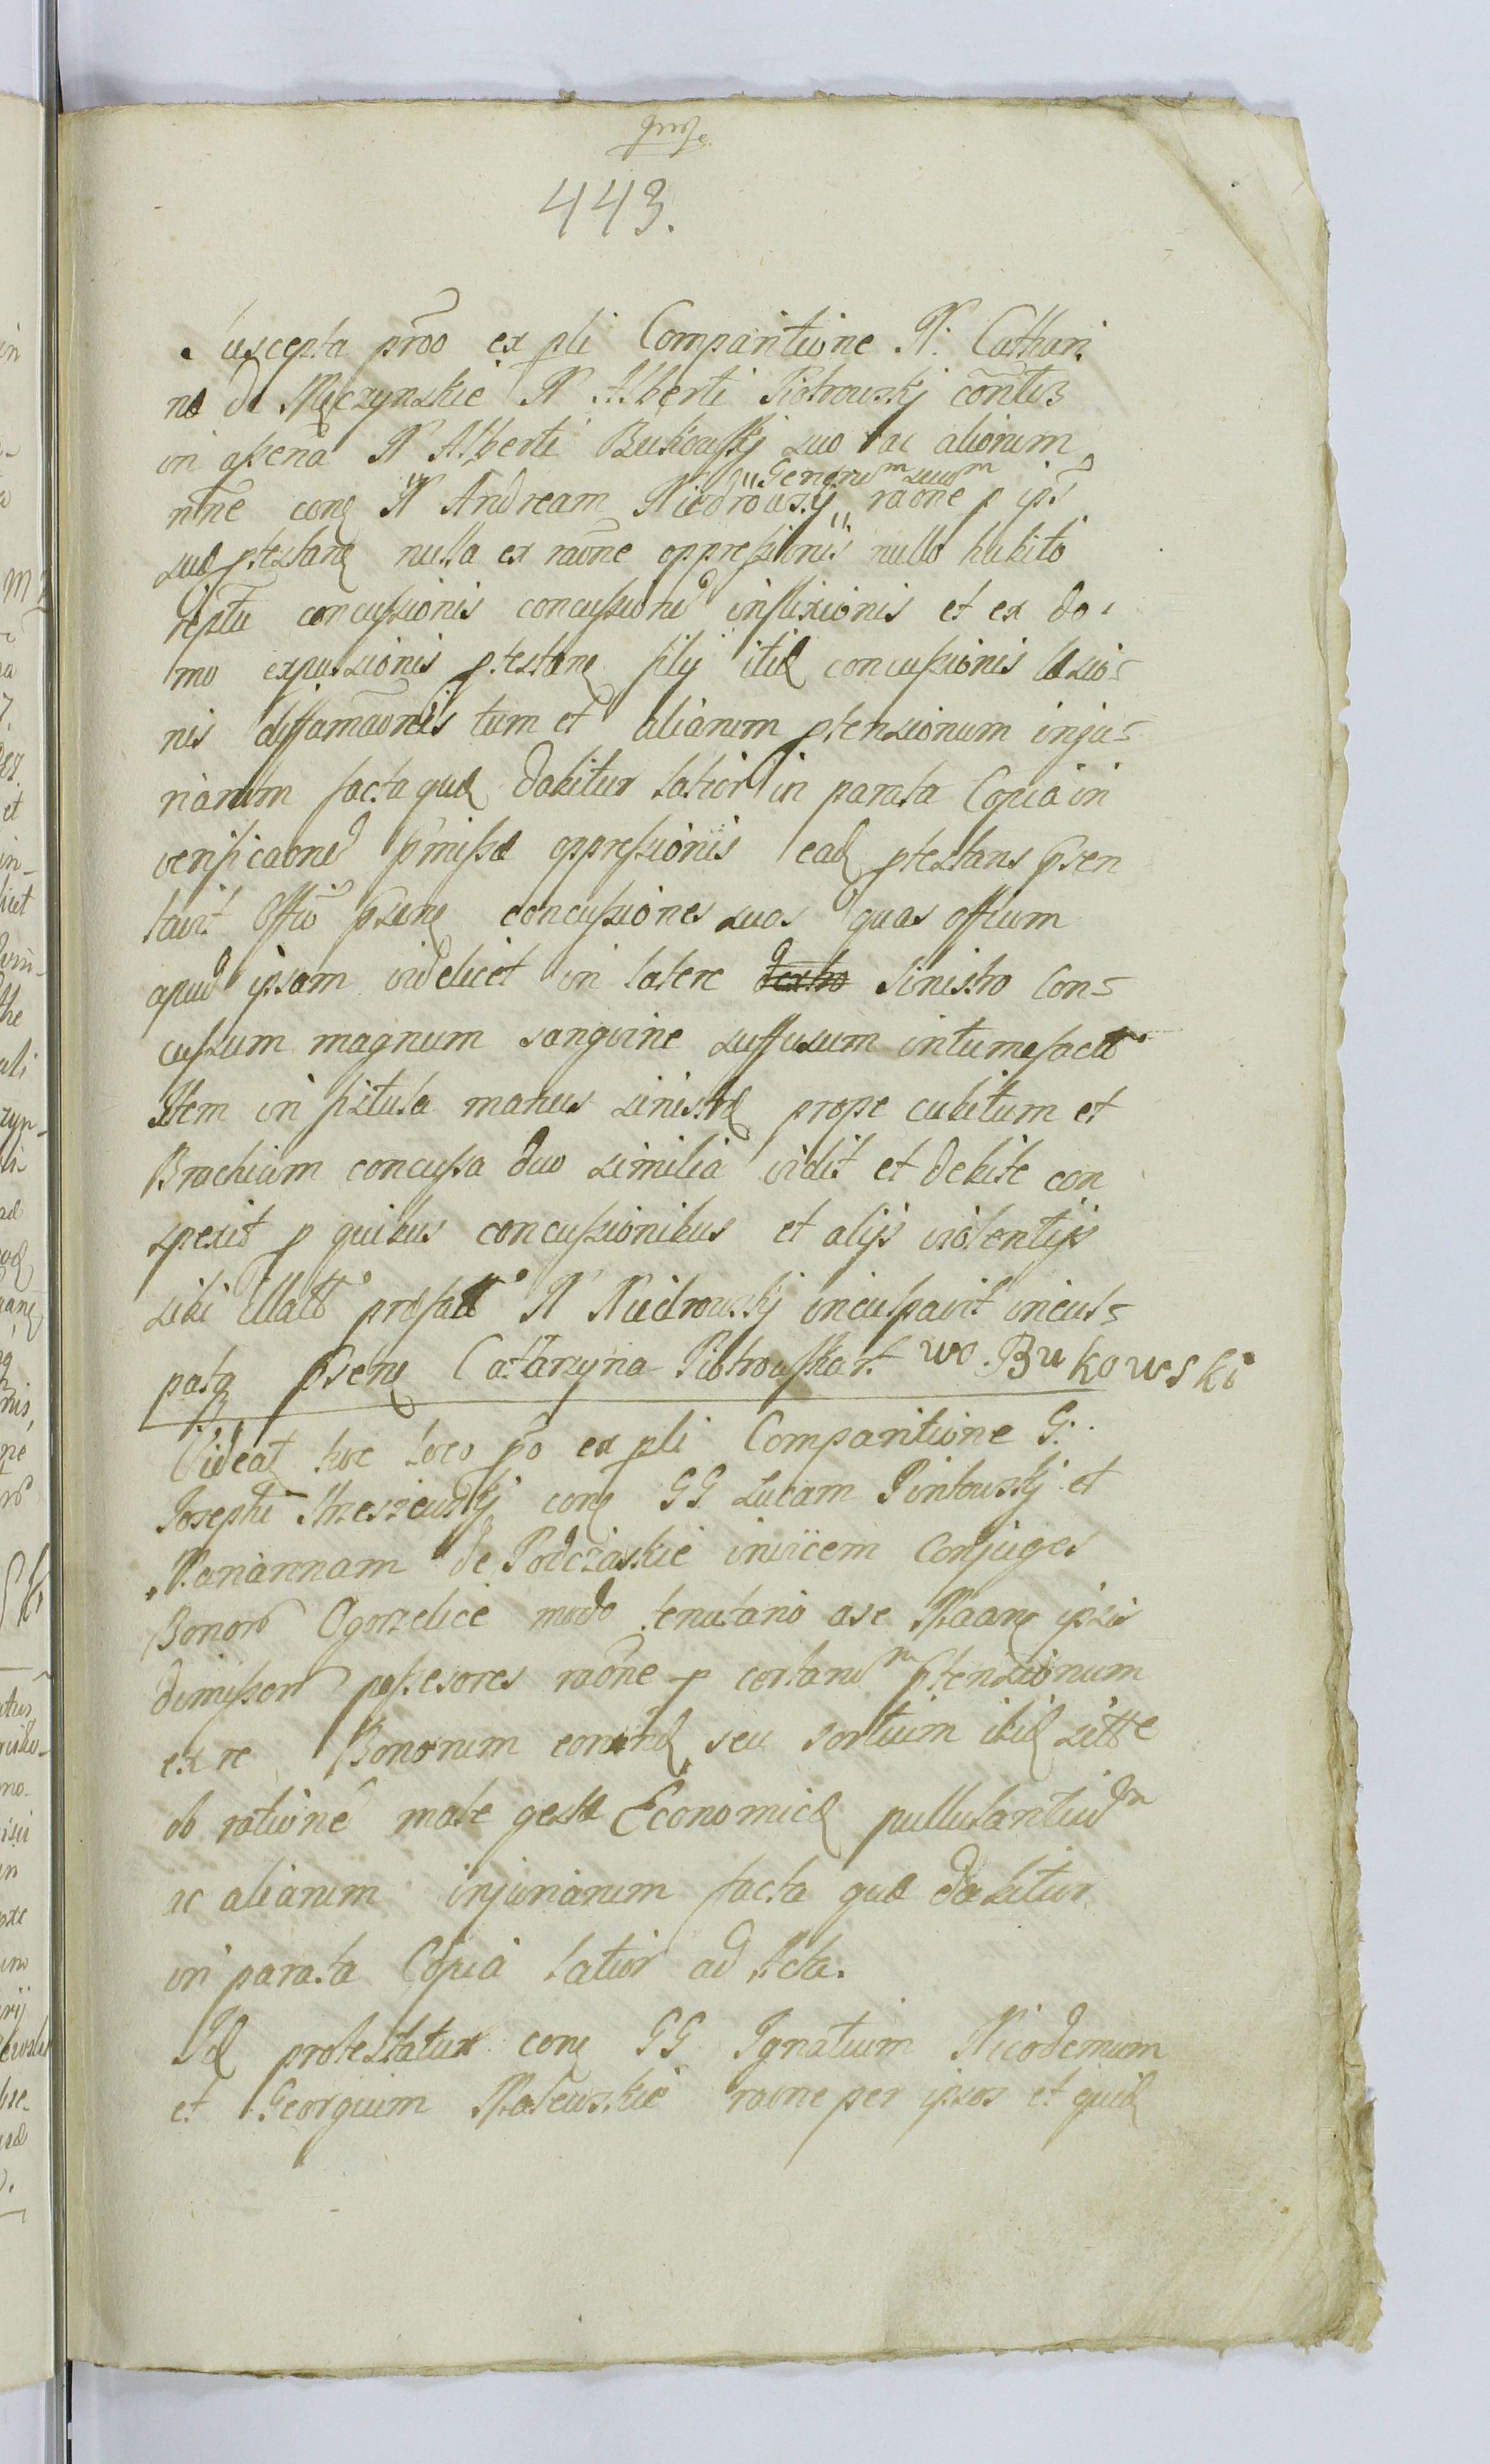 443.
Suscepta prõo ex pli Comparitione N. Cathari
næ de Męczynskie N Alberti Piotrowskj cõntis
in aßenã N Alberti Bukowskj suo ac aliorum
nñe con N Andream Niedrowskj „Generum suum„ raõne p ips
suæ ptestan nulla ex raõne oppreßionis nullo habito
rsptu concußionis concußionũ inflixionis et ex do-
mo expulsionis ptestan filij itid concußionis læsio=
nis diffamãonis tum et aliarum ptensionum inju=
riarum facta quæ dabitur latior in parata Copia in
verificaonẽ pmißæ oppreßionis ead ptestans psen
tavit Offiõ psen concußiones suas quas offium
apud ipsam videlicet in latere dextro sinistro Con=
cußum magnum sanguine suffusum intumefactũ
Item in fistula manus sinistræ prope cubitum et
Brachium concußa duo similia vidit et debite con
spexit p quibus concußionibus et alijs violentijs
sibi illatis præfatũ N Niedrowskj inculpavit incul=
pat psen Catarzyna Piotrowska wo. Bukowski
Videat hoc loco põ ex pli Comparitione G.
Josephi con GG Lucam Pintowskj et
Mariannam de Podczaskie invicem Conjuges
Bonorũ Ogorzelice modo tenutario ase ipsis
dimißorũ poßesores raõne p certarum ptensionum
ex re Bonorum eorund seu sortium ibid sitte
ob rationẽ male gestæ Economicæ pullulantium
ac aliarum injuriarum facta quæ dabitur
in parata Copia latior ad Acta.
Id protestatur con GG Ignatium Nicodemum
et Georgium raone per ipsos et quid